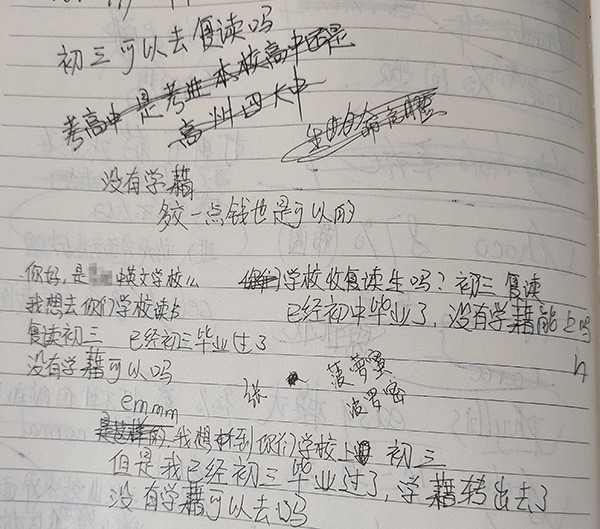 初三可以去复读吗
考高中是考进本校高中还是
高州四大中
没有学藉
多交一点钱也是可以的
你好,是 英文学校么
我想去你们学校读书
复读初三 已经初三毕业过了
没有学藉可以吗
你们学校收复读生吗?初三复读
已经初中毕业了,没有学藉能上吗
张 菠萝
波罗密
emmm
是这样的我想来到你们学校上 初三
但是我已经初三毕业过了,学藉转出去了
没有学藉可以去吗